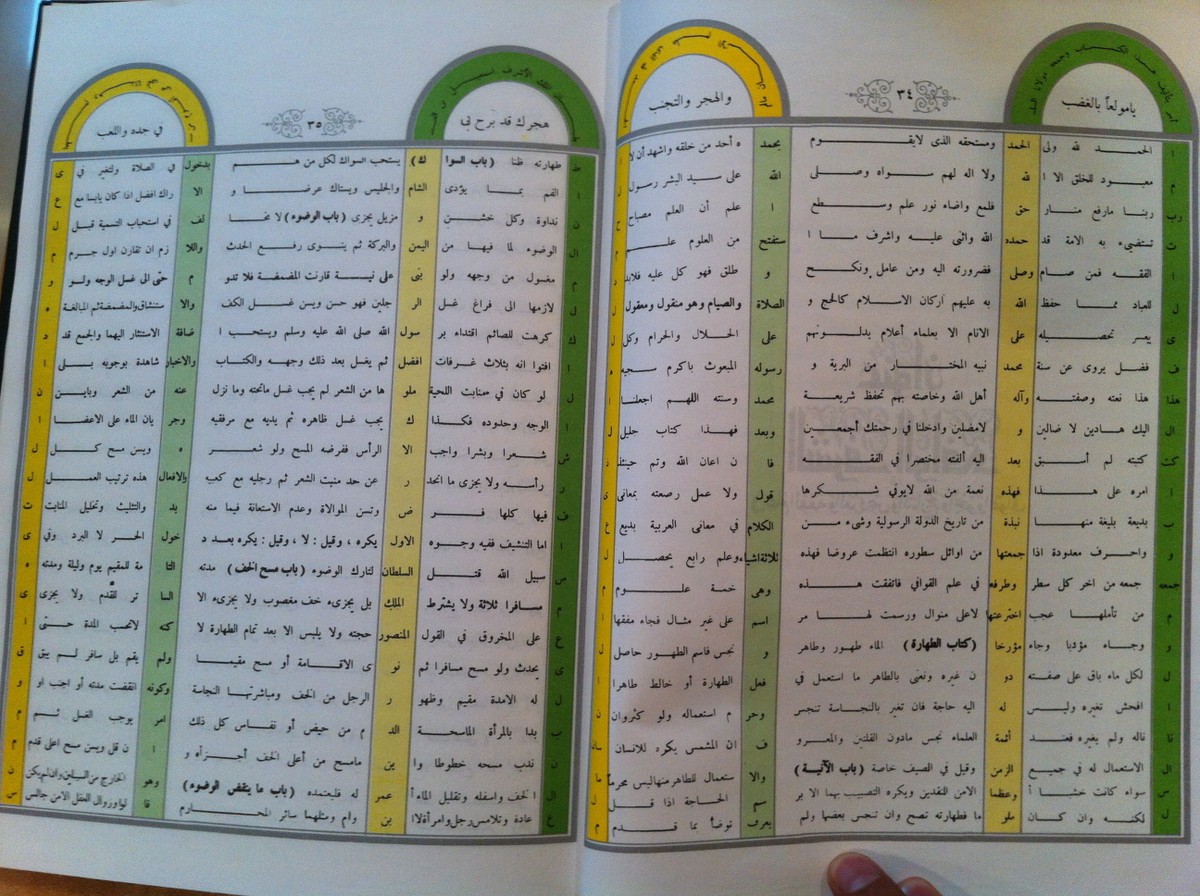 ٣٤
يامولعاً بالغضب
والهجر والتجنب
الحمد لله ولى الحمد ومستحقه الذى لايقوم بحمد ه أحد من خلقه واشهد أن لا
م معبود للخلق الا ا لله ولا اله لهم سواه وصلى الله على سيد البشر رسول
رب ربنا مارفع منار حق فلمع واضاء نور علم وسطع ا علم أن العلم مصباح
ت تستضيء به الامة قد حمده الله واثنى عليه واشرف ما ا ستفتح من العلوم علم
ا الفقه فمن صام وصلى فضرورته اليه ومن عامل ونكح و طلق فهو كل عليه فلابد
ل للعباد مما حفظ الله به عليهم اركان الاسلام كالحج و الصلاة والصيام وهو منقول ومعقول
ى يعسر تحصيله على الانام الا بعلماء أعلام يدلونهم على الحلال والحرام وكل
ف فضل يروى عن سنة محمد نبيه المختار من البرية و رسوله المبعوث باكرم سجيه
هذا هذا نعته وصفته وآله أهل الله وخاصته بهم تحفظ شريعة محمد وسنته اللهم اجعلنا
ال اليك هادين لا ضالين و لامضلين وادخلنا في رحمتك أجمعين وبعد فهذا كتاب جليل
كت كتبته لم أسبق بعد اليه ألفته مختصرا في الفقه فا ن اعان الله وتم حينئذ
ا امره على هذا فهذه نعمة من الله لايوفي شكرها قول ولا عمل رصعته بمعانى
ب بديعة بليغة منها نبذة من تاريخ الدولة الرسولية وشىء من الكلام في معانى العربية بديع
و واحرف معدودة اذا جمعتها من اوائل سطوره انتظمت عروضا فهذه ثلاثةاشياء وعلم رابع يحصل
جمعه جمعه من اخر كل سطر وطرفه في علم القوافي فاتفقت هذه وهى خمسة علوم
م من تأملها عجب اخترعتها لاعلى منوال ورسمت لها مر اسم على غير مثال فجاء مفقها
و وجاء مؤدبا وجاء مؤرخا (كتاب الطهارة) الماء طهور وطاهر و نجس فاسم الطهور حاصل
ل لكل ماء باق على صفته دو ن غيره ونعنى بالطاهر ما استعمل في فعل الطهارة أو خالط طاهرا
ا افحش تغيره وليس له اليه حاجة فان تغير بالنجاسة تنجس وحر م استعماله ولو كثروان
نا ناله ولم يغيره فعند أئمة العلماء نجس مادون القلتين والمعرو ف ان المشمس يكره للانسان
ال الاستعمال له في جميع الزمن وقيل في الصيف خاصة (باب الآنية) والا ستعمال للطاهر منهاليس محرماً
س سواء كانت خشبا أ وعظما الامن النقدين ويكره التضبيب بهما الا بر سم الحاجة اذا قل
ل لكنه وان كان ملو ما فطهارته تصح وان تنجس بعضها ولم يعرف توضأ بما قدم
٣٥
هجرك قد برح بى
في جده واللعب
ط طهارته ظنا (باب السوا ك) يستحب السواك لكل من هم بدخول في الصلاة ولتغير في ى
ا الفم بما يؤدى الشام والجليس ويستاك عرضا و الا راك افضل اذا كان يابسا مع ع
ن نداوة وكل خشن و مزيل يجزى (باب الوضوء) لا خفا لف في استحباب التسمية قبل ل
ال الوضوء لما فيها من اليمن والبركة ثم ينوى رفع الحدث واللا زم ان تقارن اول جرم م
م مغسول من وجهه ولو بقى على نية قارنت المضمضة فلا تدو م حتى الى غسل الوجه ولو و
ل لازمها الى فراغ غسل الر جلين فهو حسن ويسن غسل الكف والا ستنشاق والمضمضة ثم المبالغة ه
ك كرهت للصائم اقتداء بر سول الله صلى الله عليه وسلم ويستحب ا ضافة الاستنثار اليهما والجمع قد د
ا افتوا انه بثلاث غرفات افضل ثم يغسل بعد ذلك وجهه والكتاب والاخبار شاهدة بوجوبه بلى ا
ل لو كان في منابت اللحية ملو ها من الشعر لم يجب غسل ماتحته وما نزل عنه من الشعر وباين ن
ا الوجه وحدوده فكذا ك يجب غسل ظاهره ثم يديه مع مرفقيه وجر يان الماء على الاعضا ا
ش شعرا وبشرا واجب الا الرأس ففرضه المسح ولو شعر ه ويسن مسح كل ل
ر رأسه ولا يجزى ما انحد ر عن حد منبت الشعر ثم رجليه مع كعبيه والافعال هذه ترتيب العمل ل
ف فيها كلها فر ض وتسن الموالاة وعدم الاستعانة فيما منه يد والتثليث وتخليل المنابت ت
ا اما التنشيف ففيه وجوه الاول يكره ، وقيل : لا ، وقيل : يكره بعد د خول الحر لا البرد وفي ى
س سبيل الله قتل السلطان لتارك الوضوء (باب مسح الخف) مدته الثا مة للمقيم يوم وليلة ومدته ه
م مسافرا ثلاثة ولا يشترط الملك بل يجزىء خف مغصوب ولا يجزىء الا السا تر للقدم ولا يجزى ى
ع على المخروق في القول المنصور حجته ولا يلبس الا بعد تمام الطهارة لا كنه لاتحسب المدة حتى ا
ى يحدث ولو مسح مسافرا ثم نو ى الاقامة أو مسح مقيما ولم يقم بل سافر لم يبق ق
ل له الامدة مقيم وظهو ر الرجل من الخف ومباشرتها النجاسة وكونه انقضت مدته أو اجنب او و
ب بدا بالمرأة الماسحة الد م من حيض أو نفاس كل ذلك امر يوجب الغسل ثم م
ن ندب مسحه خطوطا وا ين مامسح من أعلى الخف أجزأه و ا ن قل ويسن مسح اعلى قدم م
ال الخف واسفله وتقليل الماء أ عمر له فليعتمده (باب ما ينقض الوضوء) وهو الخارج من السبيلين وان لم يكن ن
ع عادة وتلامس رجل وامرأةلا بن وام ومثلهما سائر المحارم فا